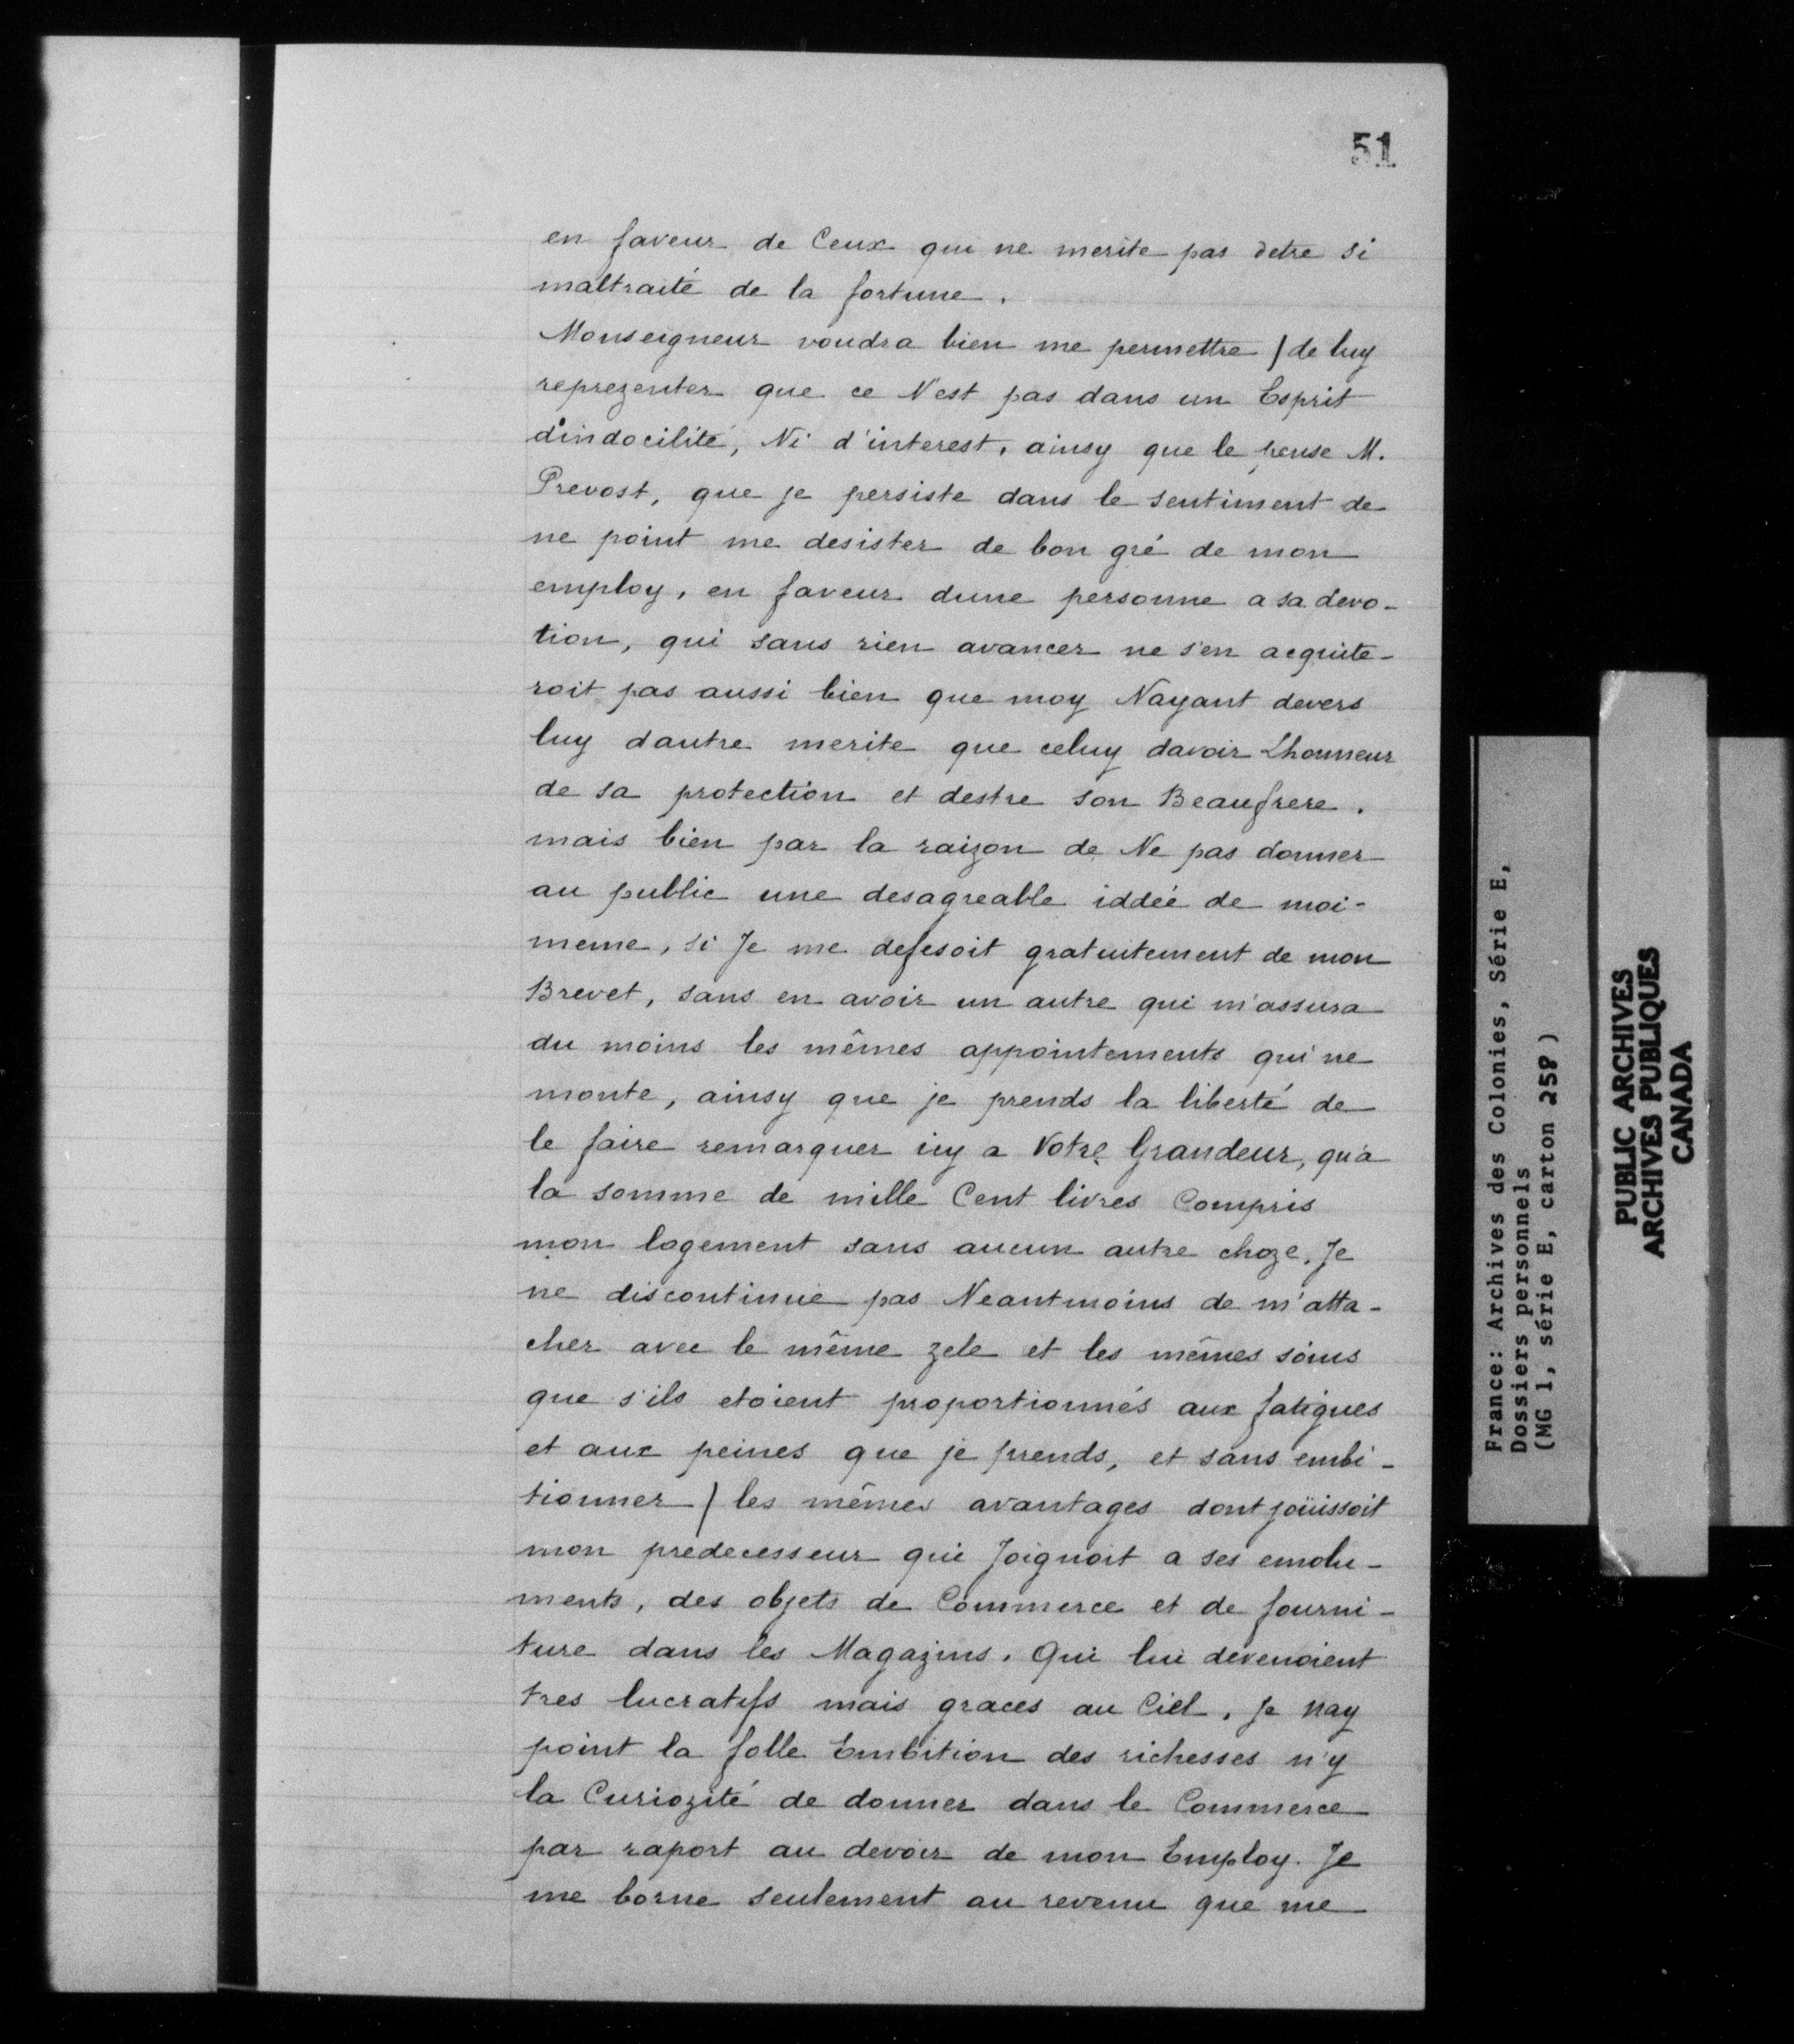 51
en faveur de Ceux qui ne merite pas detre si
maltraité de la fortune.
Monseigneur voudra bien me permettre / de luy
reprezenter que ce N'est pas dans un Esprit
d'indocilité, Ni d'interest, ainsy que le pense M.
Prevost, que je persiste dans le sentiment de
ne point me desister de bon gré de mon
employ, en faveur dune personne a sa devo-
tion, qui sans rien avancer ne s'en acquite-
roit pas aussi bien que moy Nayant devers
luy dautre merite que celuy davoir Lhonneur
de sa protection et destre son Beaufrere.
mais bien par la raizon de Ne pas donner
au public une desagreable iddée de moi-
meme, si Je me defesoit gratuitement de mon
Brevet, sans en avoir un autre qui m'assura
du moins les mêmes appointements qui ne
monte, ainsy que je prends la liberté de
le faire remarquer icy a Votre Grandeur, qu'a
la somme de mille Cent livres Compris
mon logement sans aucun autre choze. Je
ne discontinuë pas Neantmoins de m'atta-
cher avec le même zele et les mêmes soins
que s'ils etoient proportionnés aux fatigues
et aux peines que je prends, et sans embi-
tionner / les mêmes avantages dont joüissoit
mon predecesseur qui Joignoit a ses emolu-
ments, des objets de Commerce et de fourni-
ture dans les Magazins. Qui lui devenoient
tres lucratifs mais graces au Ciel, Je nay
point la folle Embition des richesses n'y
la Curiozité de donner dans le Commerce
par raport au devoir de mon Employ. Je
me borne seulement au revenu que me
France: Archives des Colonies, Série E,
Dossiers personnels
(MG 1, série E, carton 258)
PUBLIC ARCHIVES
ARCHIVES PUBLIQUES
CANADA